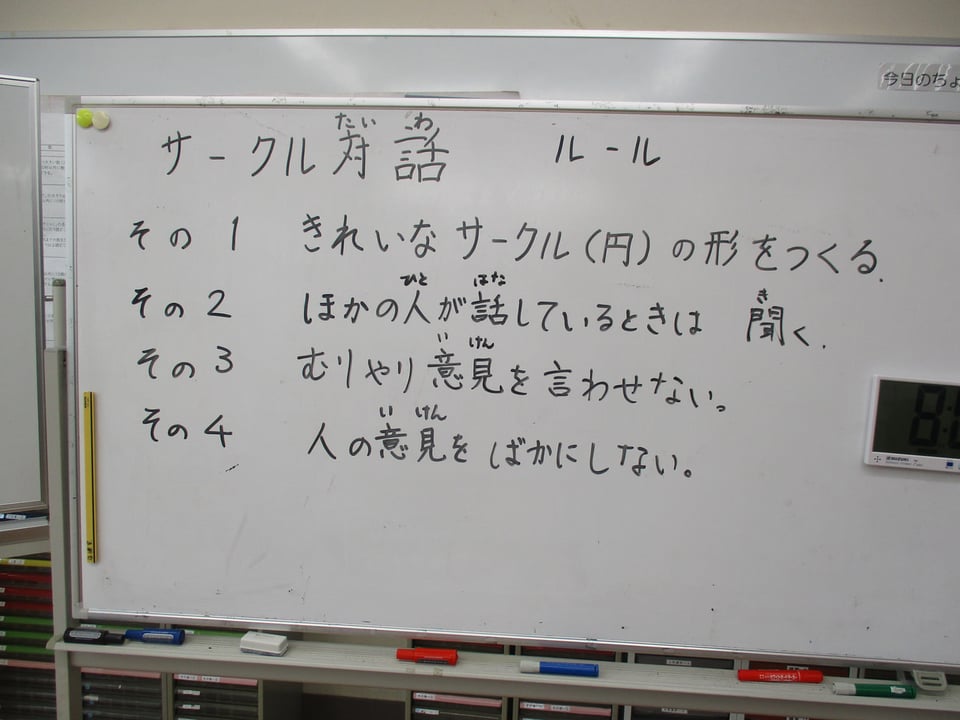 今日のちょ
サークル対話 ルール
たい わ
その1 きれいなサークル(円)の形をつくる.
その2 ほかの人が話しているときは 聞く.
ひと はな き
その3 むりやり意見を言わせない。
い けん
その4 人の意見をばかにしない。
い けん